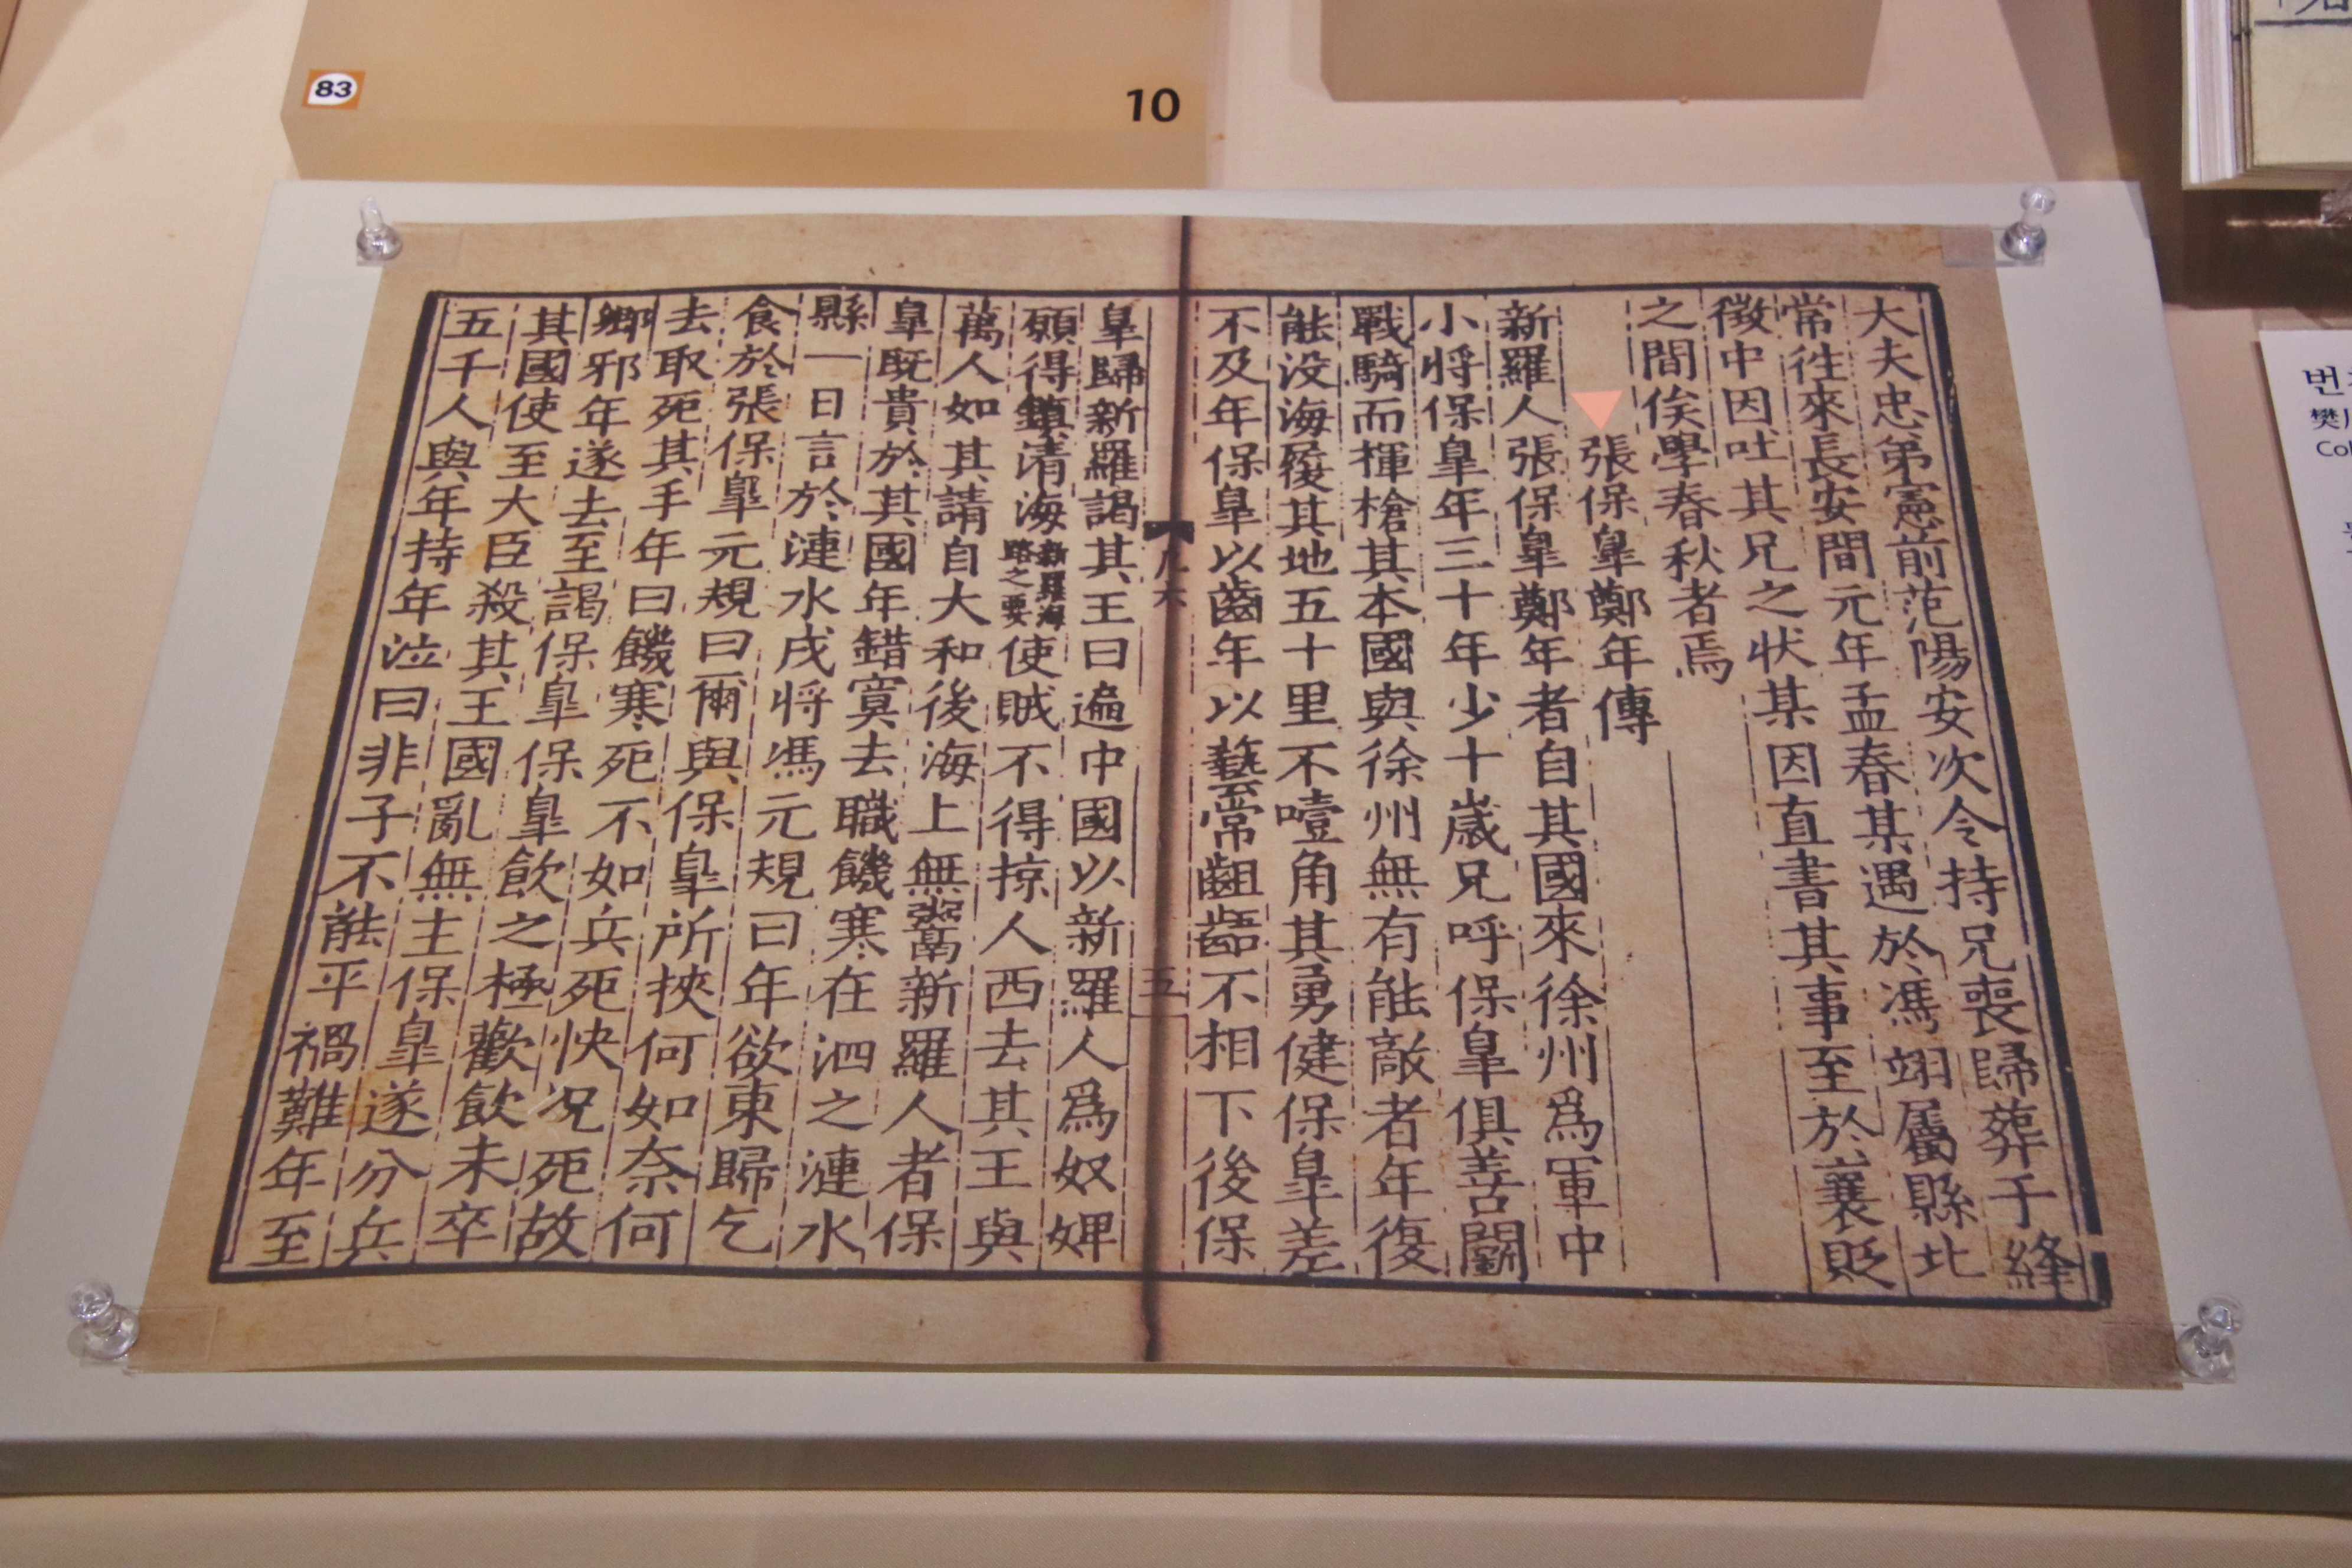 83
10
大夫忠弟憲前范陽安次令持兄喪歸葬于絳
常徃來長安間元年孟春某遇於馮翊屬縣北
徴中因吐其兄之状某因直書其事至於襄貶
之間俟學春秋者焉
張保皐鄭年傳
新羅人張保皐鄭年者自其國來徐州爲軍中
小將保皐年三十年少十歳兄呼保皐俱善鬭
戰騎而揮槍其本國與徐州無有能敵者年復
能没海履其地五十里不噎角其勇健保皐差
不及年保皐以齒年以藝常齟齬不相下後保
五
皐歸新羅謁其王曰遍中國以新羅人爲奴婢
願得鎮清海新羅海路之要使賊不得掠人西去其王與
萬人如其請自大和後海上無鬻新羅人者保
皐既貴於其國年錯寞去職饑寒在泗之漣水
縣一日言於漣水戍將馮元規曰年欲東歸乞
食於張保皐元規曰爾與保皐所挾何如奈何
去取死其手年曰饑寒死不如兵死快況死故
鄉邪年遂去至謁保皐保皐飲之極歡飲未卒
其國使至大臣殺其王國亂無主保皐遂分兵
五千人與年持年泣曰非子不能平禍難年至
번
樊川
Col